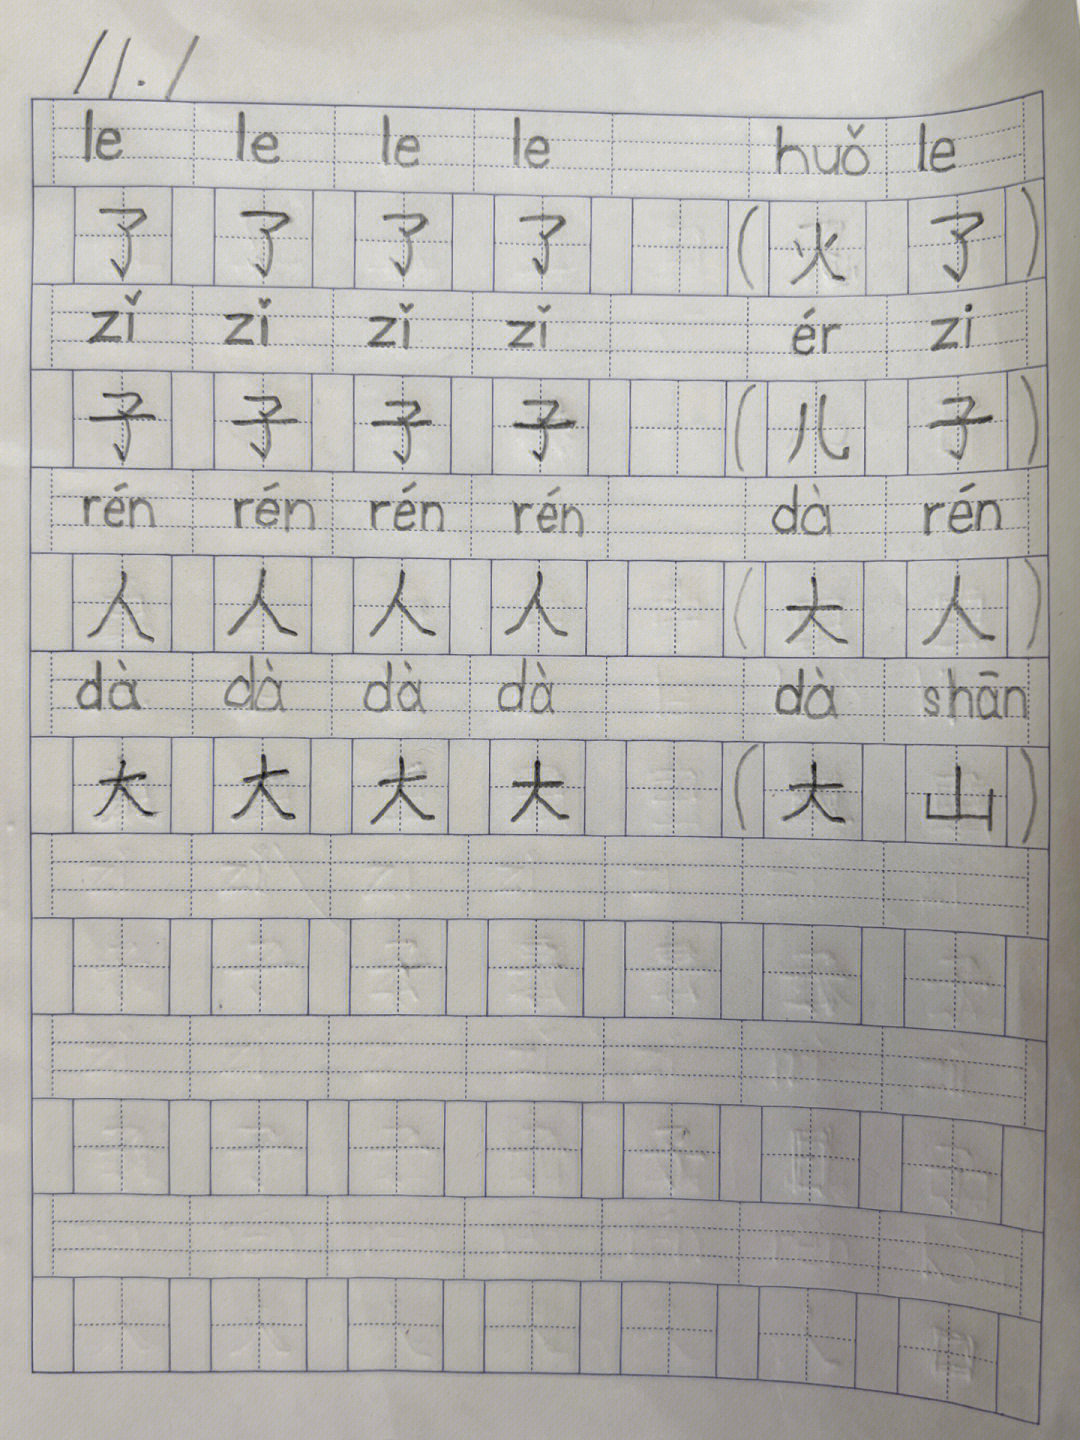 11.1
le le le le huǒ le
了 了 了 了 (火 了)
zǐ zǐ zǐ zǐ ér zi
子 子 子 子 (儿 子)
rén rén rén rén dà rén
人 人 人 人 (大 人)
dà dà dà dà dà shān
大 大 大 大 (大 山)